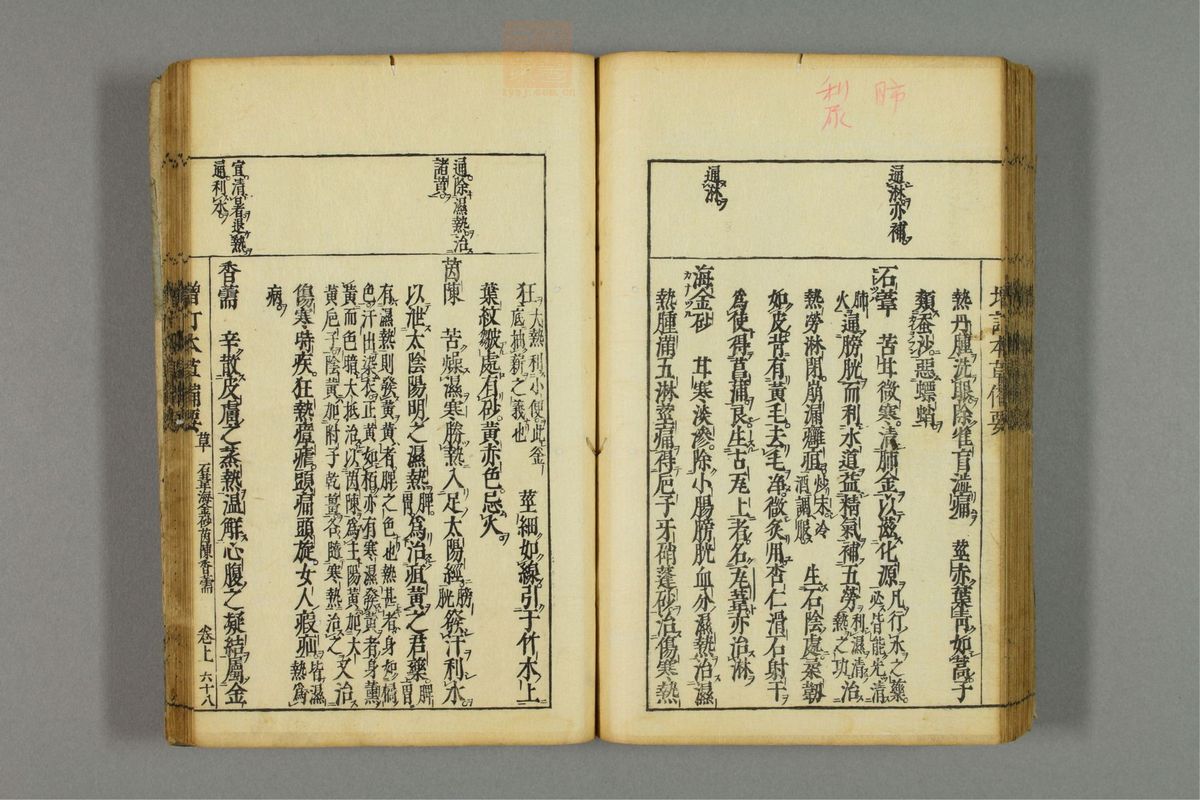 肺
利尿
通淋亦補
通淋
熱丹腫洗眼除雀盲澁痛 莖赤葉靑如蒿子
類蚕沙惡螵蛸
石葦 苦甘微寒清肺金以滋化源凡行水之藥必皆能先清
肺火通膀胱而利水道益精氣補五勞利濕清熱之功治
熱勞淋閉崩漏癰疽炒末冷酒調服 生石陰處柔韌
如皮背有黃毛去毛淨微炙用杏仁滑石射干
爲使得菖蒲良生古瓦上者名瓦葦亦治淋
海金砂 甘寒淡滲除小腸膀胱血分濕熱治濕
熱腫滿五淋莖痛得巵子牙硝蓬砂治傷寒熱
通除濕熱治
諸黃
宜清暑退熱
通利水
狂大熱利小便此釜底抽薪之義也 莖細如線引于竹木上
葉紋皺處有砂黃赤色忌火
茵陳 苦燥濕寒勝熱入足太陽經膀胱發汗利水
以泄太陰陽明之濕熱脾胃爲治疸黃之君藥脾胃
有濕熱則發黃黃者脾之色也熱甚者身如橘
色汗出染衣正黃如栢亦有寒濕發黃者身薰
黃而色暗大抵治以茵陳爲主陽黃加大
黃巵子陰黃加附子乾薑各隨寒熱治之又治
傷寒時疾狂熱瘴瘧頭痛頭旋女人瘕疝皆濕熱爲
病
香薷 辛散皮膚之蒸熱温解心腹之凝結屬金
增訂本草備要
增訂本草備要 草 石葦海金砂茵陳香薷 卷上 六十八